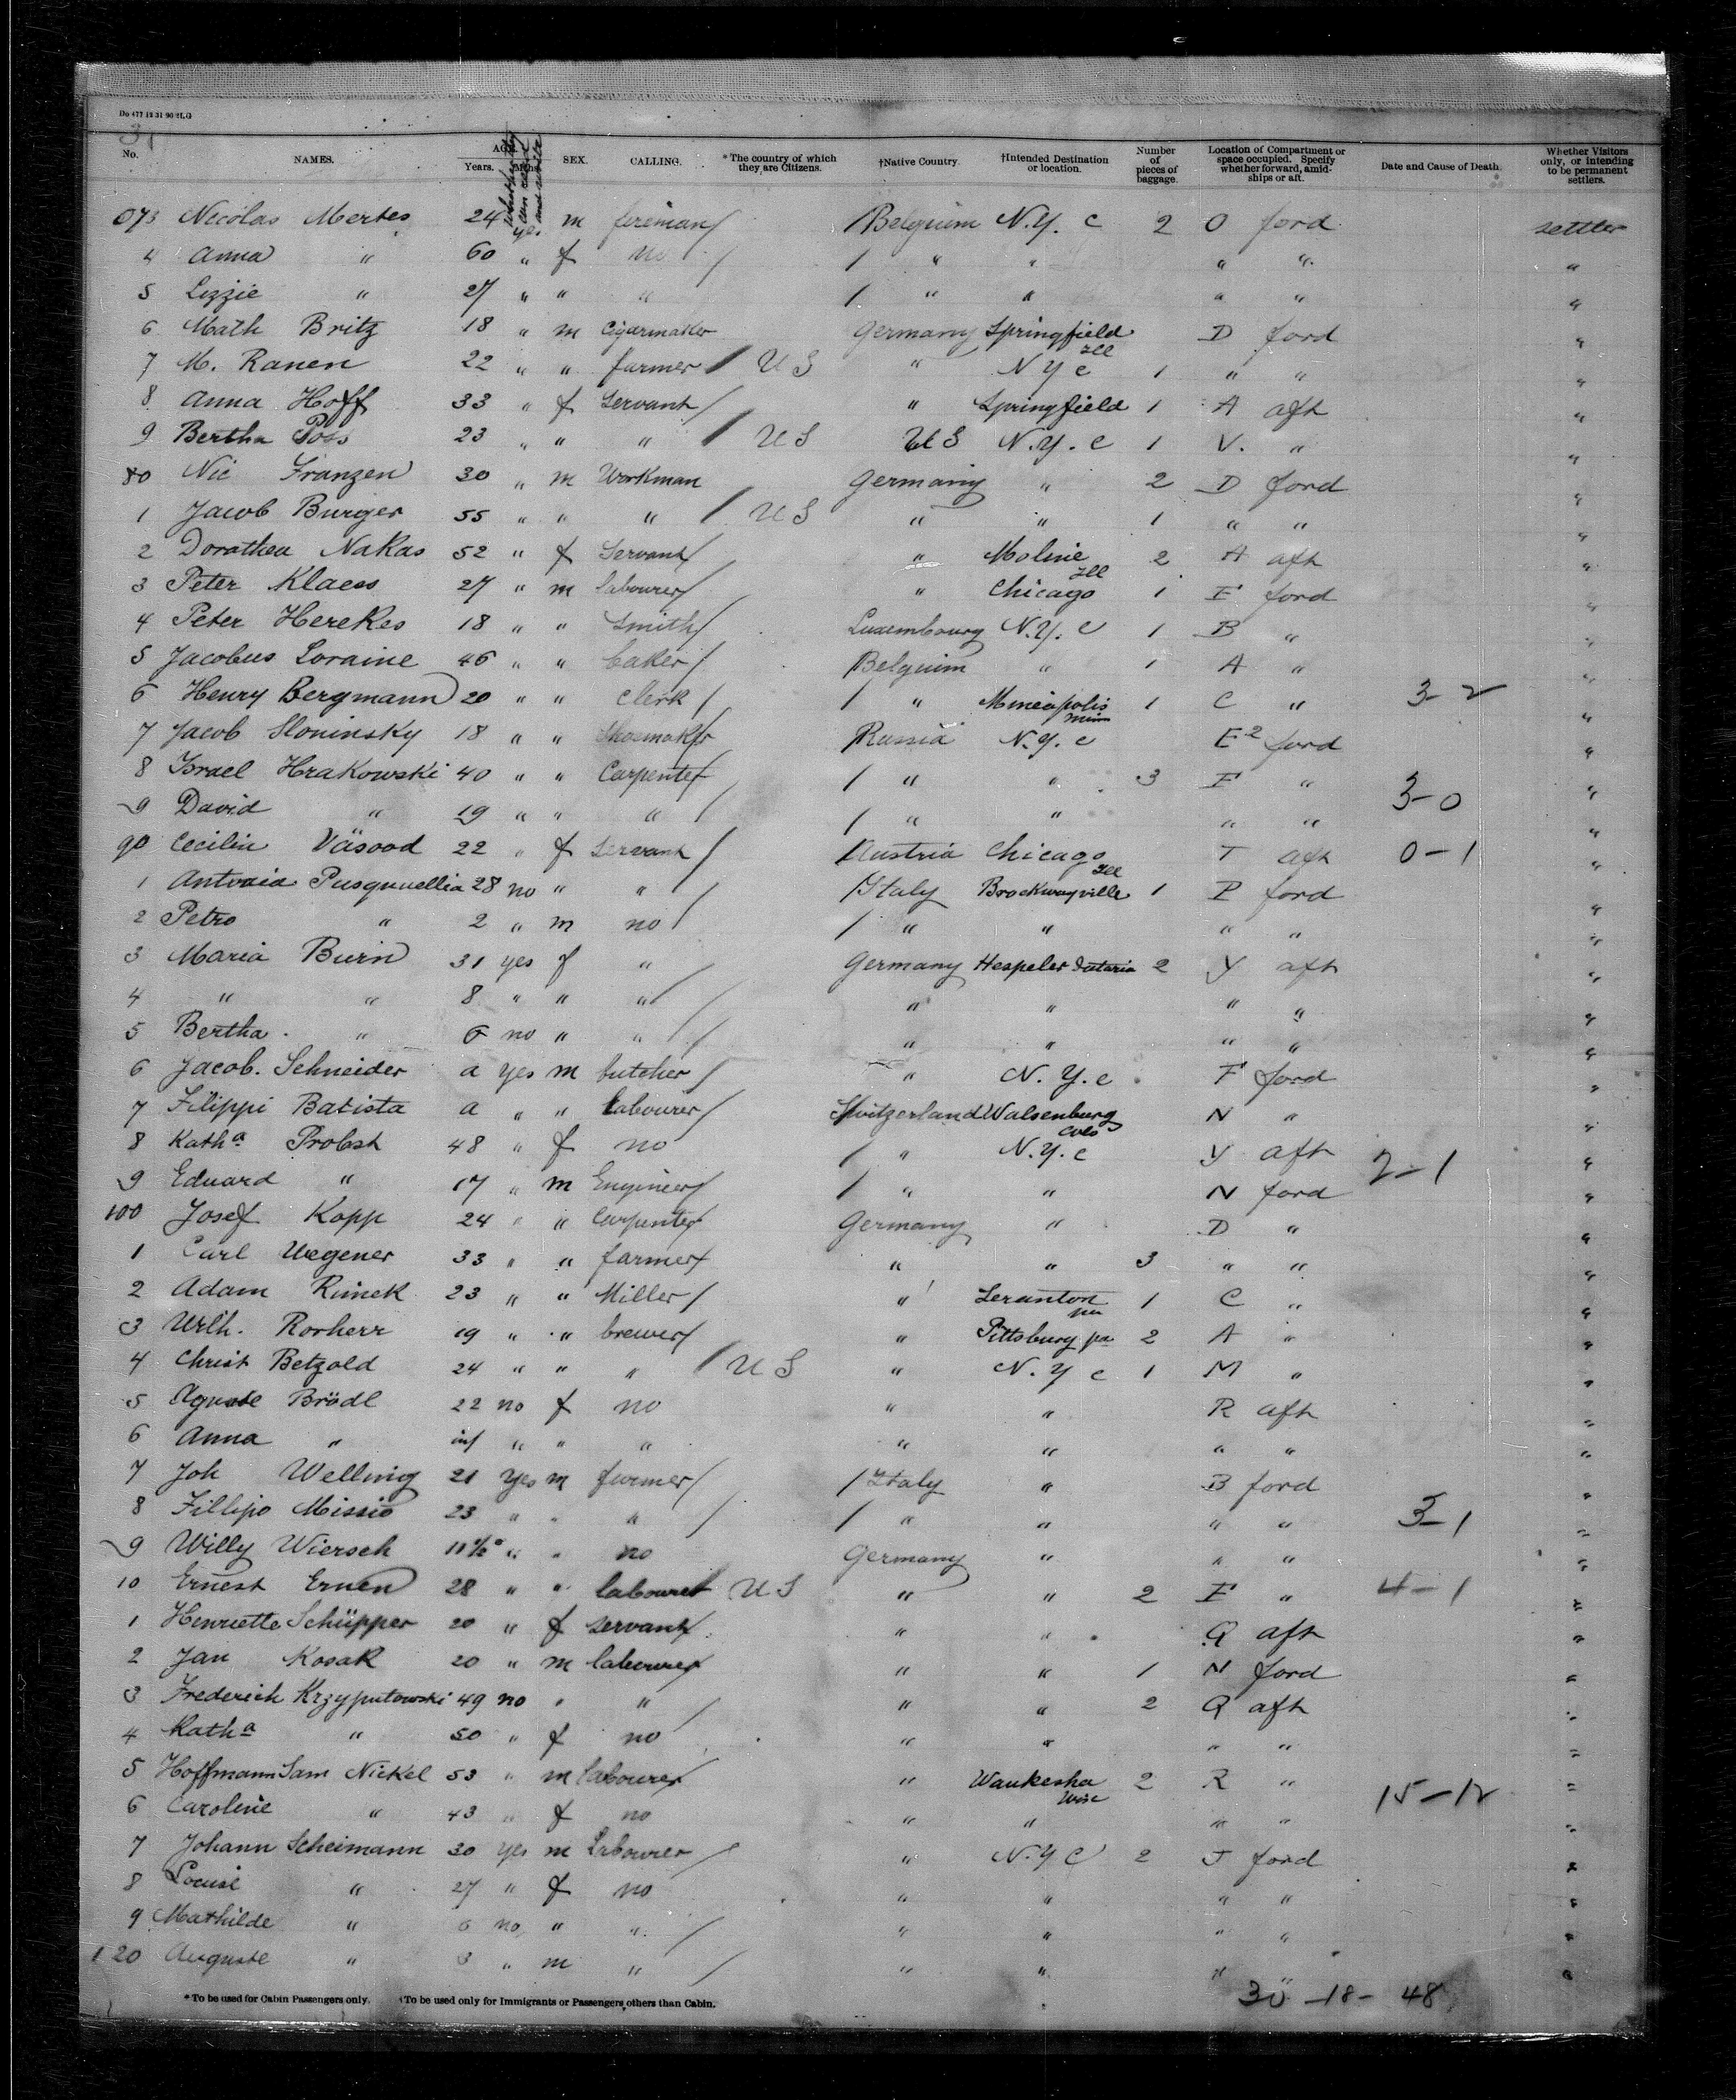 Do 477 12 31 90 2LG
31
No. NAMES. AGE. Years. Months. whether they can read and write SEX. CALLING. *The country of which they are Citizens. †Native Country. †Intended Destination or location. Number of pieces of baggage. Location of Compartment or space occupied. Specify whether forward, amidships or aft. Date and Cause of Death. Whether Visitors only, or intending to be permanent settlers.
073 Nicolas Mertes 24 yes m fireman / / Belgium N.Y. C 2 O ford settler
4 Anna " 60 " f no / / " " " " "
5 Lizzie " 27 " " " / " " " " "
6 Math Britz 18 " m Cigarmaker Germany Springfield Ill D ford "
7 M. Ranen 22 " " farmer / U S " N Y C 1 " " "
8 Anna Hoff 33 " f Servant / " Springfield 1 A aft "
9 Bertha Poss 23 " " " / U S U S N.Y. C 1 V. " "
80 Nic Franzen 30 " m Workman Germany " 2 D ford "
1 Jacob Burger 55 " " " / U S " " 1 " " "
2 Dorathea Nakas 52 " f Servant / " Moline Ill 2 A aft "
3 Peter Klaess 27 " m labourer / " Chicago 1 F ford "
4 Peter Herekes 18 " " Smith / Luxembourg N.Y. C 1 B " "
5 Jacobus Loraine 46 " " baker / / Belguim " 1 A " "
6 Henry Bergmann 20 " " Clerk / / " Mineapolis Minn 1 C " 3-2 "
7 Jacob Sloninsky 18 " " Shoemaker / Russia N.Y. C E2 ford "
8 Israel Hrakowski 40 " " Carpenter / / " " 3 F " "
9 David " 19 " " " / / " " " " 3-0 "
90 Cecilin Väsood 22 " f Servant / / Austria Chicago Ill T aft 0-1 "
1 Antonia Pusquuellia 28 no " " / / Italy Brockwayville 1 P ford "
2 Petro " 2 " m no / / " " " " "
3 Maria Burn 31 yes f " Germany Hespeler Ontario 2 Y aft "
4 " " 8 " " " / " " " " "
5 Bertha " 6 no " " / " " " " "
6 Jacob. Schneider a yes m butcher / " N. Y. C F ford "
7 Filippi Batista a " " labourer / Switzerland Walsenburg Colo N " "
8 Katha Probst 48 " f no / " N.Y. C Y aft 2-1 "
9 Eduard " 17 " m Engineer / / " " N ford "
100 Josef Kopp 24 " " Carpenter / Germany " D " "
1 Carl Wegener 33 " " farmer / " " 3 " " "
2 Adam Rimek 23 " " Miller / " Scranton pa 1 C " "
3 Wilh. Rorherr 19 " " brewer / " Pittsburg pa 2 A " "
4 Christ Betzold 24 " " " / U S " N. Y C 1 M " "
5 Aguste Brödl 22 no f no " " R aft "
6 Anna " inf " " " " " " " "
7 Joh Welling 21 yes m farmer / / Italy " B ford "
8 Fillipo Missio 23 " " " / / " " " " 3-1 "
9 Willy Wiersch 11½ " " no Germany " " " "
10 Ernest Ernen 28 " " labourer U S " " 2 F " 4-1 "
1 Henriette Schüpper 20 " f servant / " " Q aft "
2 Jan Kosak 20 " m labourer / " " 1 N ford "
3 Frederich Krzyputowski 49 no " " / " " 2 Q aft "
4 Katha " 50 " f no / " " " " "
5 Hoffmann Sam Nickel 53 " m labourer / " Waukesha Wisc 2 R " 15-12 "
6 Caroline " 43 " f no " " " " "
7 Johann Scheimann 30 yes m Labourer / " N.Y C 2 J ford "
8 Louise " 27 " f no " " " " "
9 Mathilde " 6 no " " / " " " " "
120 Auguste " 3 " m " / " " " " "
30-18-48
*To be used for Cabin Passengers only. †To be used only for Immigrants or Passengers others than Cabin.